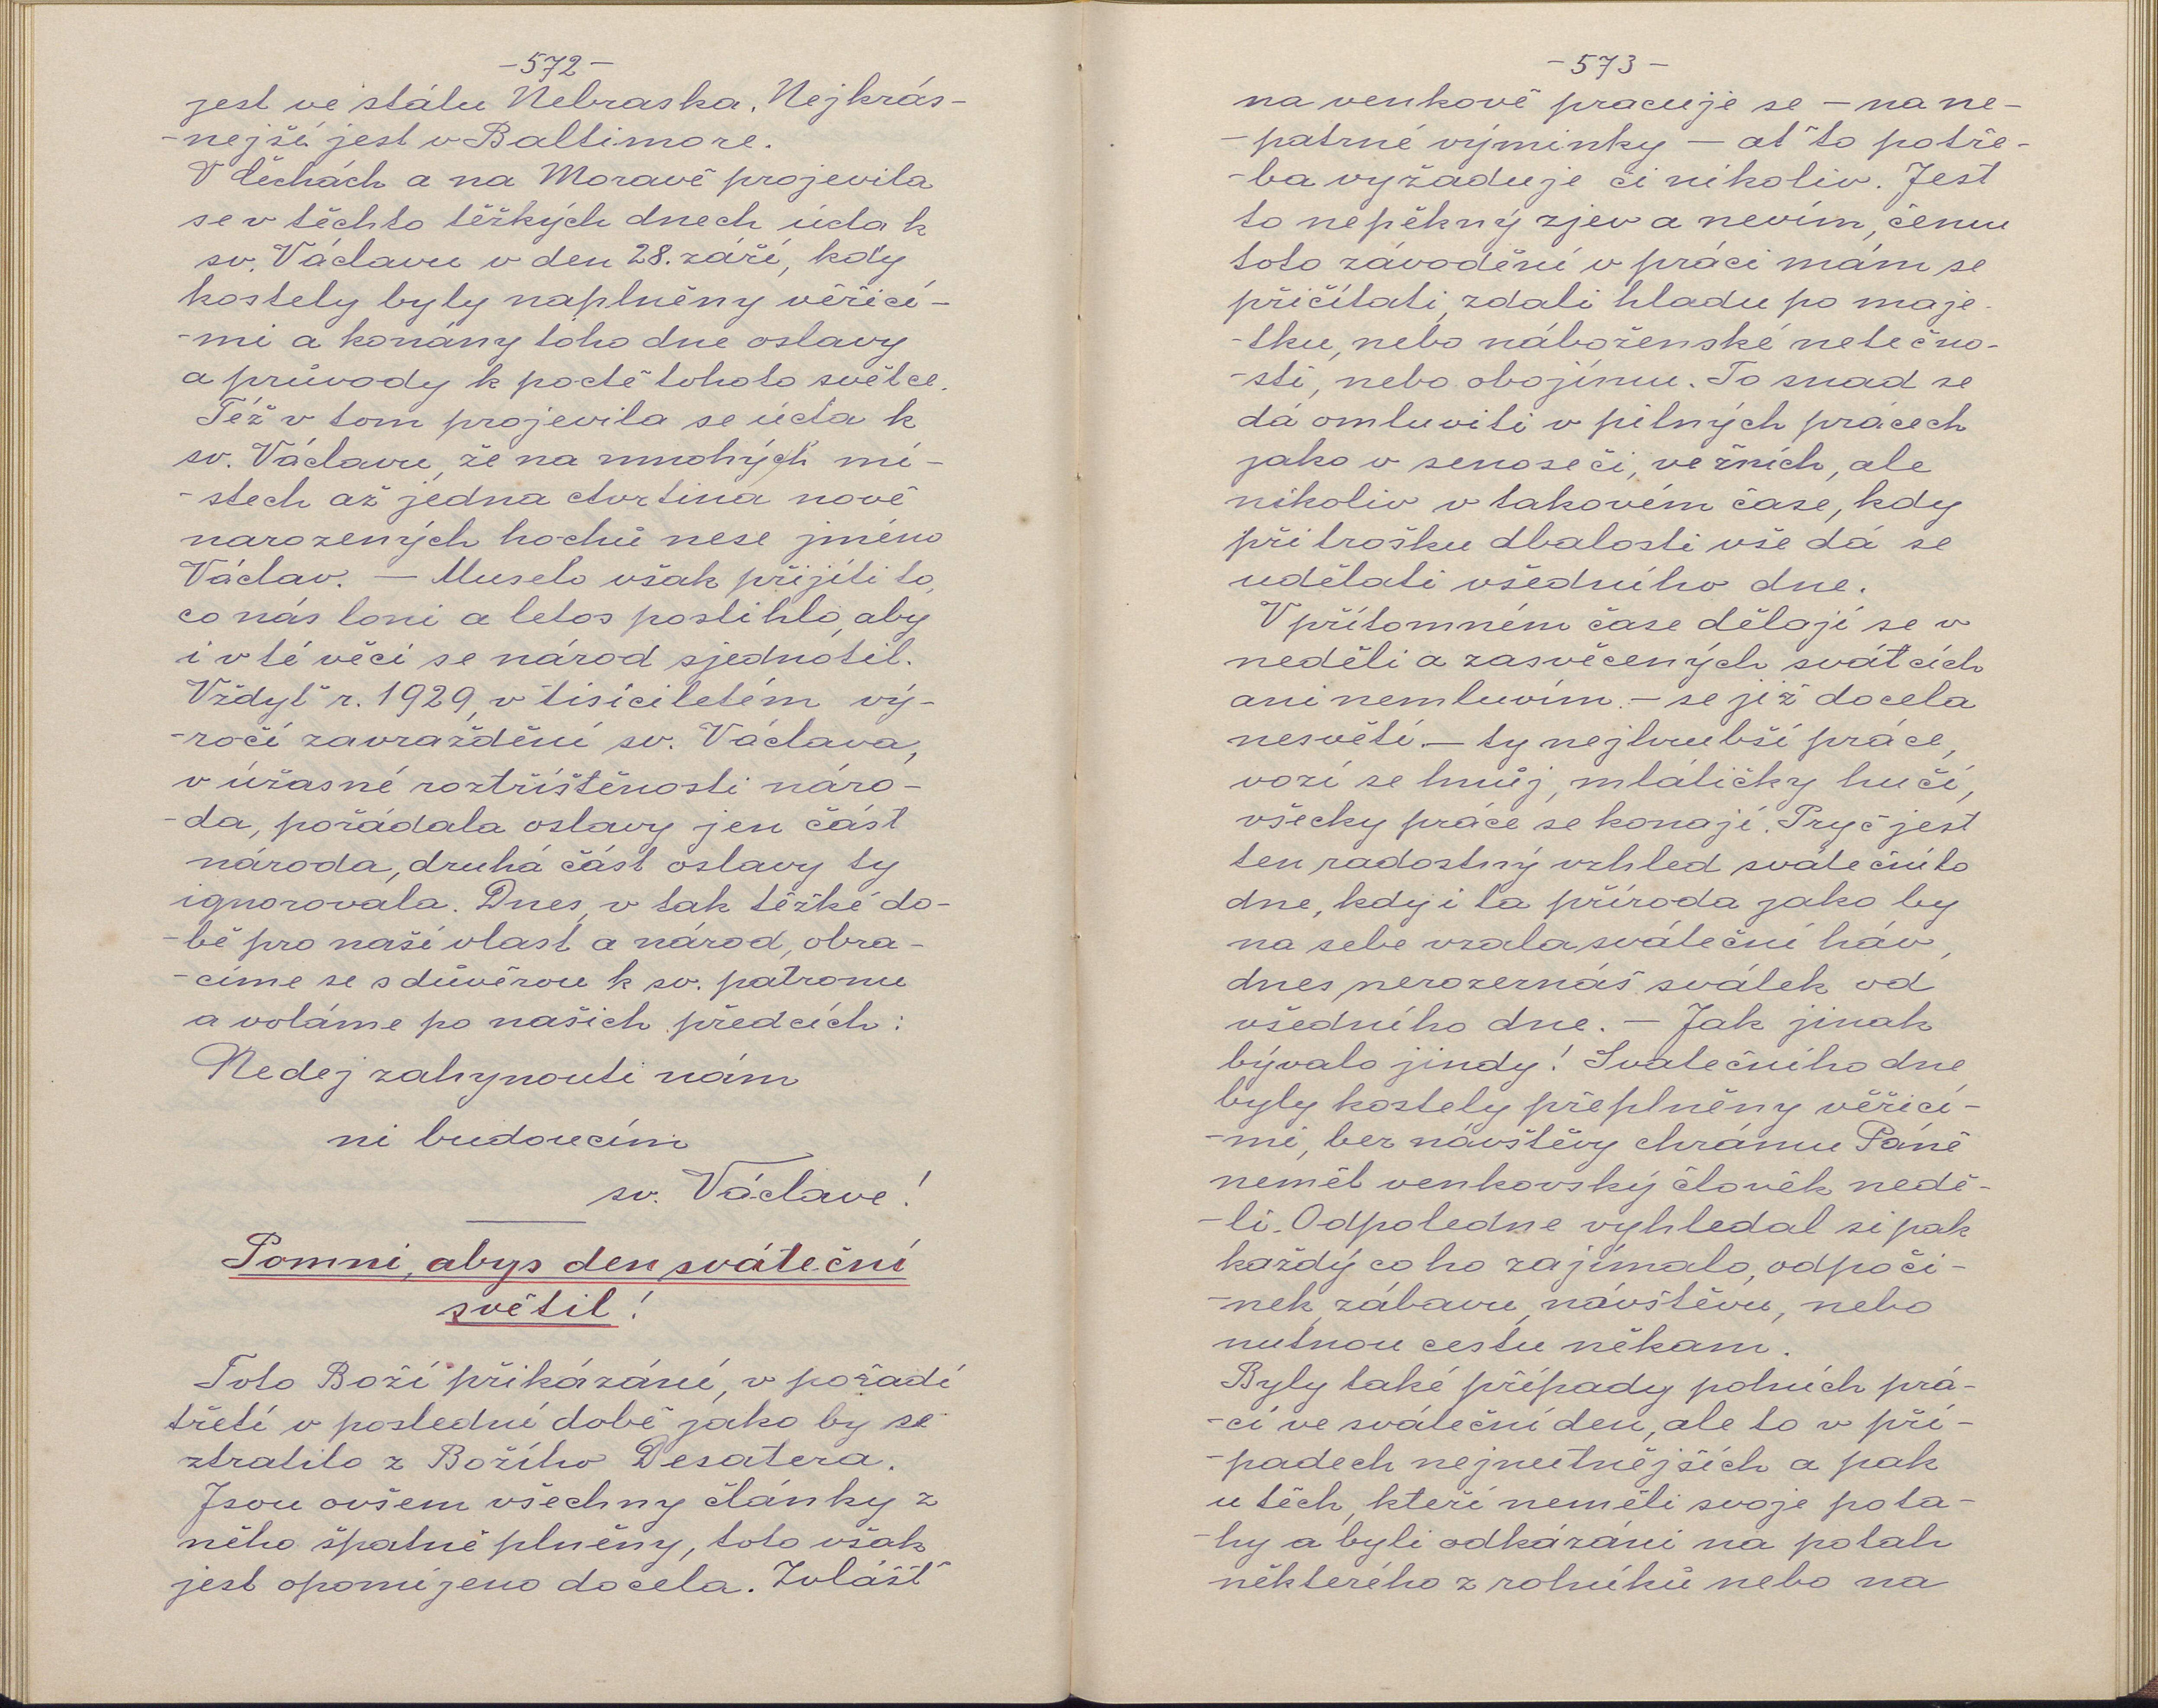 -572-
jest ve státu Nebraska. Nejkrás-
-nejší jest v Baltimore.
V Čechách a na Moravě projevila
se v těchto těžkých dnech úcta k
sv. Václavu v den 28. září, kdy
kostely byly naplněny věřící-
-mi a konány toho dne oslavy
a průvody k poctě tohoto světce.
Též v tom projevila se úcta k
sv. Václavu, že na mnohých mí-
-stech až jedna čtvrtina nově
narozených hochů nese jméno
Václav. — Muselo však přijíti to,
co nás loni a letos postihlo, aby
i v té věci se národ sjednotil.
Vždyť r. 1929, v tisíciletém vý-
-ročí zavraždění sv. Václava,
v úžasné roztříštěnosti náro-
-da, pořádala oslavy jen část
národa, druhá část oslavy ty
ignorovala. Dnes, v tak těžké do-
-bě pro naši vlast a národ, obra-
-címe se s důvěrou k sv. patronu
a voláme po našich předcích:
Nedej zahynouti nám
ni budoucím
sv. Václave!
Pomni, abys den sváteční
světil!
Toto Boží přikázání, v pořadí
třetí v poslední době jako by se
ztratilo z Božího Desatera.
Jsou ovšem všechny články z
něho špatně plněny, toto však
jest opomíjeno docela. Zvlášť
-573-
na venkově pracuje se — na ne-
-patrné výminky — ať to potře-
-ba vyžaduje či nikoliv. Jest
to nepěkný zjev a nevím, čemu
toto závodění v práci mám se
přičítati, zdali hladu po maje-
-tku, nebo náboženské netečno-
-sti, nebo obojímu. To snad se
dá omluviti v pilných prácech
jako v senoseči, ve žních, ale
nikoliv v takovém čase, kdy
při trošku dbalosti vše dá se
udělati všedního dne.
V přítomném čase dělají se v
neděli a zasvěcených svátcích
ani nemluvím. — se již docela
nesvětí. — ty nejhrubší práce,
vozí se hnůj, mlátičky hučí,
všecky práce se konají. Pryč jest
ten radostný vzhled svátečního
dne, kdy i ta příroda jako by
na sebe vzala sváteční háv,
dnes nerozeznáš svátek od
všedního dne. — Jak jinak
bývalo jindy! Svatečního dne
byly kostely přeplněny věřící-
-mi, bez návštěvy chrámu Páně
neměl venkovský člověk nedě-
-li. Odpoledne vyhledal si pak
každý co ho zajímalo, odpoči-
-nek, zábavu, návštěvu, nebo
nutnou cestu někam.
Byly také případy polních prá-
-cí ve sváteční den, ale to v pří-
-padech nejnutnějších a pak
u těch, kteří neměli svoje pota-
-hy a byli odkázáni na potah
některého z rolníků nebo na